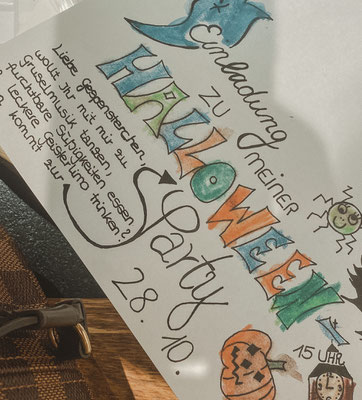 Einladung
zu
meiner
HALLOWEEN-
Party
28. 10.
15 UHR
Liebe gespensterchen,
wollt Ihr mit mir zu
Gruselmusik tanzen,
furchtbare Süßigkeiten essen?
leckere Geisterlimo trinken?
kommt zur